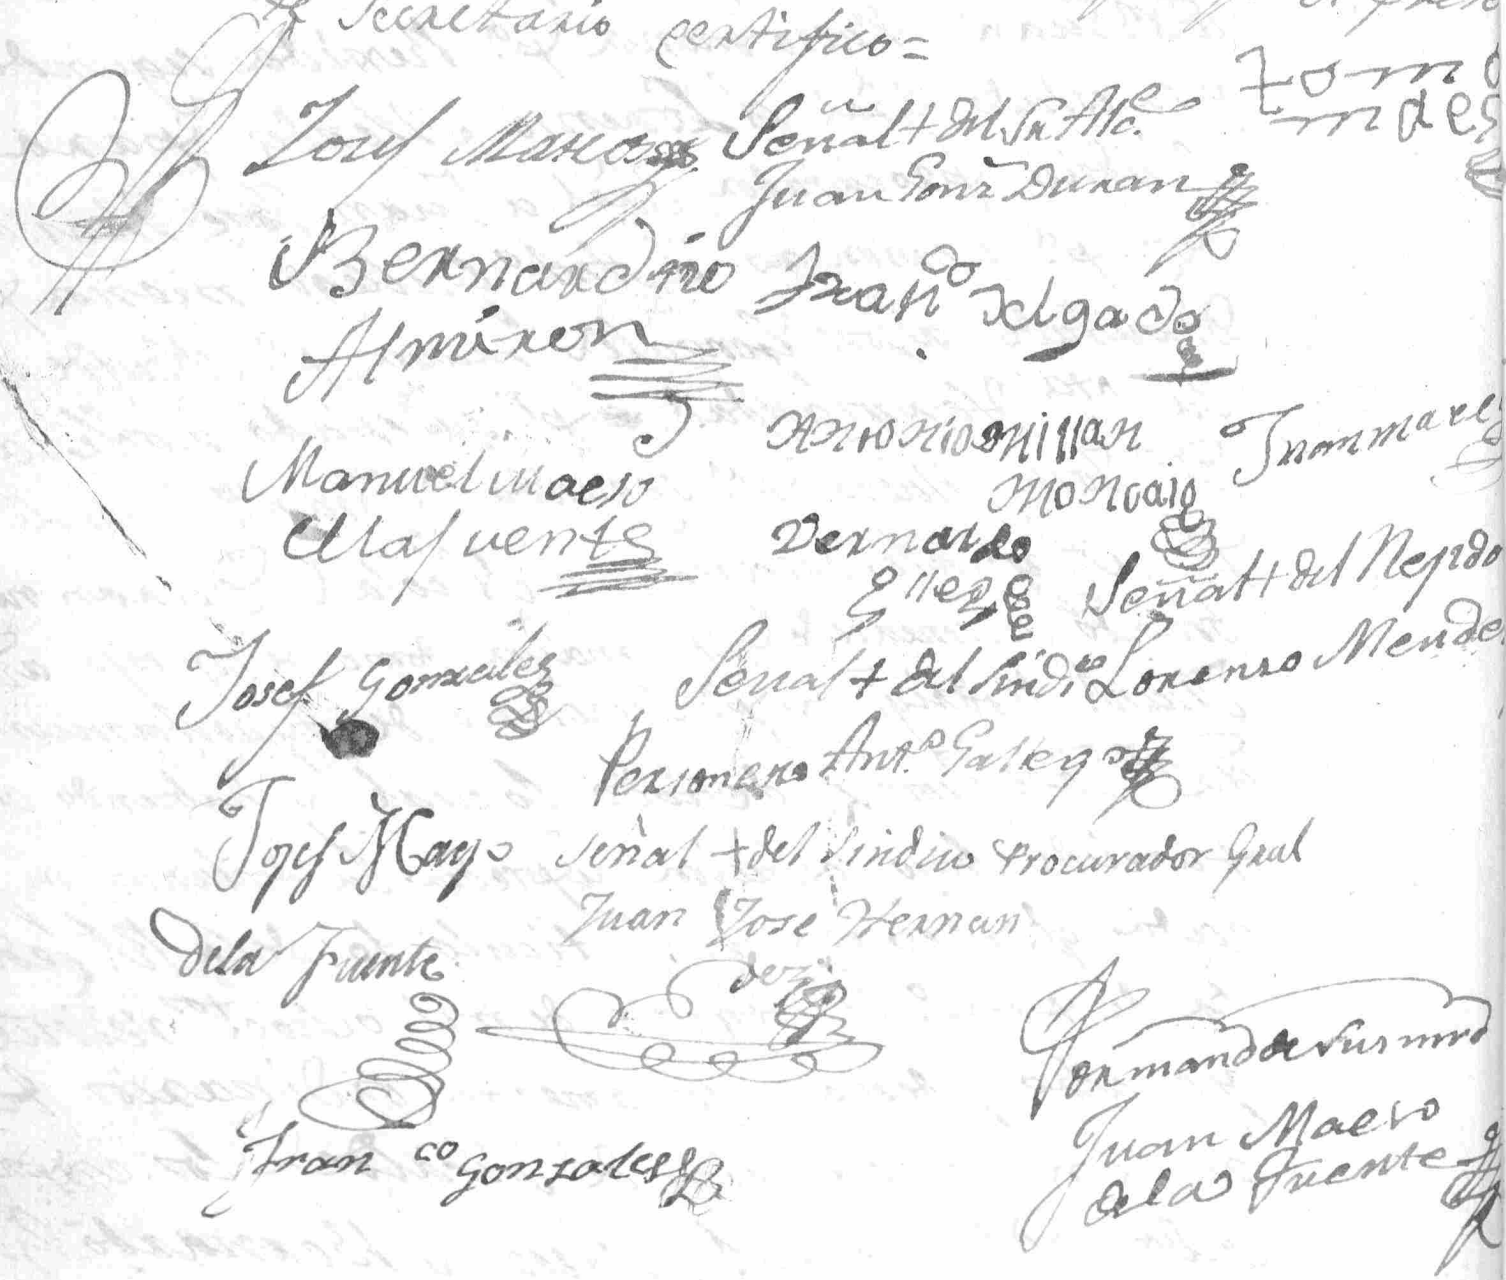 Secretario certifico =
Josef Marcos
Señal + del Sr Alce
Juan Gonz Duran
Bernardino
Almiron
Franco Delgado
Manuel Maeso
de la fuente
Antonio Millan
Moncaio
Juan mare
Vernardo
Señal + del Rejido
Lorenzo Mende
Josef Gonzales
Señal + del Sindico
Personero Anto Gallego
Josef Mayo
dela Fuente
señal + del Sindico Procurador Gral
Juan Jose Hernan
dez
Por mando de sus mrd
Juan Maeso
dela Fuente
Fran co Gonzales